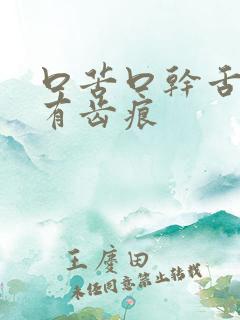 口苦口幹舌
有齿痕
王廖田
未经同意禁止转载